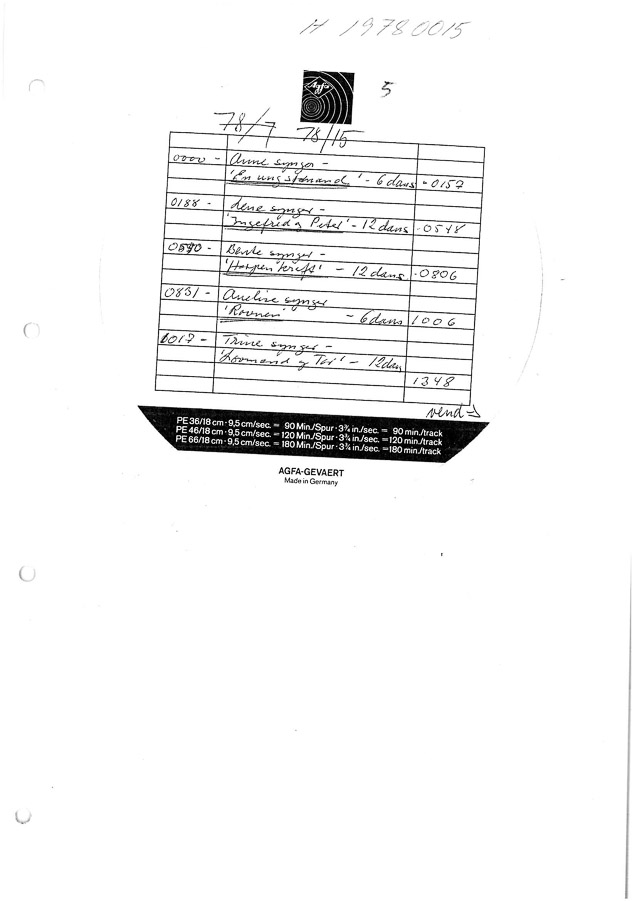 H 19780015
Agfa
5
78/7 78/15
0000 - Anne synger -
'En ung sømand' - 6 dans - 0157
0188 - Lene synger -
'Ingefred og Peter' - 12 dans - 0548
- Bente synger -
'Harpen kræft' - 12 dans - 0806
0831 - Aneline synger
'Ravnen' - 6 dans 1006
0017 - Trine synger -
- 12 dan
1348
vend →
PE 36/18 cm · 9,5 cm/sec. = 90 Min./Spur · 3¾ in./sec. = 90 min./track
PE 46/18 cm · 9,5 cm/sec. = 120 Min./Spur · 3¾ in./sec. = 120 min./track
PE 66/18 cm · 9,5 cm/sec. = 180 Min./Spur · 3¾ in./sec. = 180 min./track
AGFA-GEVAERT
Made in Germany